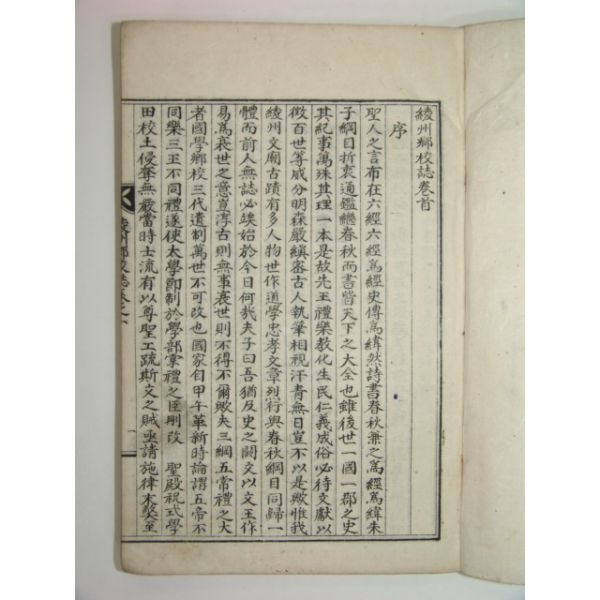 綾州鄉校誌卷首
序
聖人之言布在六經六經爲經史傳爲緯然詩書春秋兼之爲經爲緯朱
子綱目折衷通鑑繼春秋而書皆天下之大全也雖後世一國一郡之史
其紀事萬殊其理一本是故先王禮樂教化生民仁義成俗必待文獻以
徵百世等威分明森嚴縝密古人執筆相視汗青無日豈不以是歟惟我
綾州文廟古蹟有多人物世作道學忠孝文章烈行與春秋綱目同歸一
體而前人無誌必竢始於今日何哉夫子曰吾猶反史之闕文以文王作
易爲衰世之意豈淳古則無事衰世則不得不爾歟夫三綱五常禮之大
者國學鄉校三代遺制萬世不可改也國家自甲午革新時論謂五帝不
同樂三王不同禮遂使太學節制於學部掌禮之臣刪改 聖殿祝式學
田校土侵奪無嚴當時士流有以尊聖工疏斯文之賊亟請施律末蒙至
綾州鄉校誌卷之一